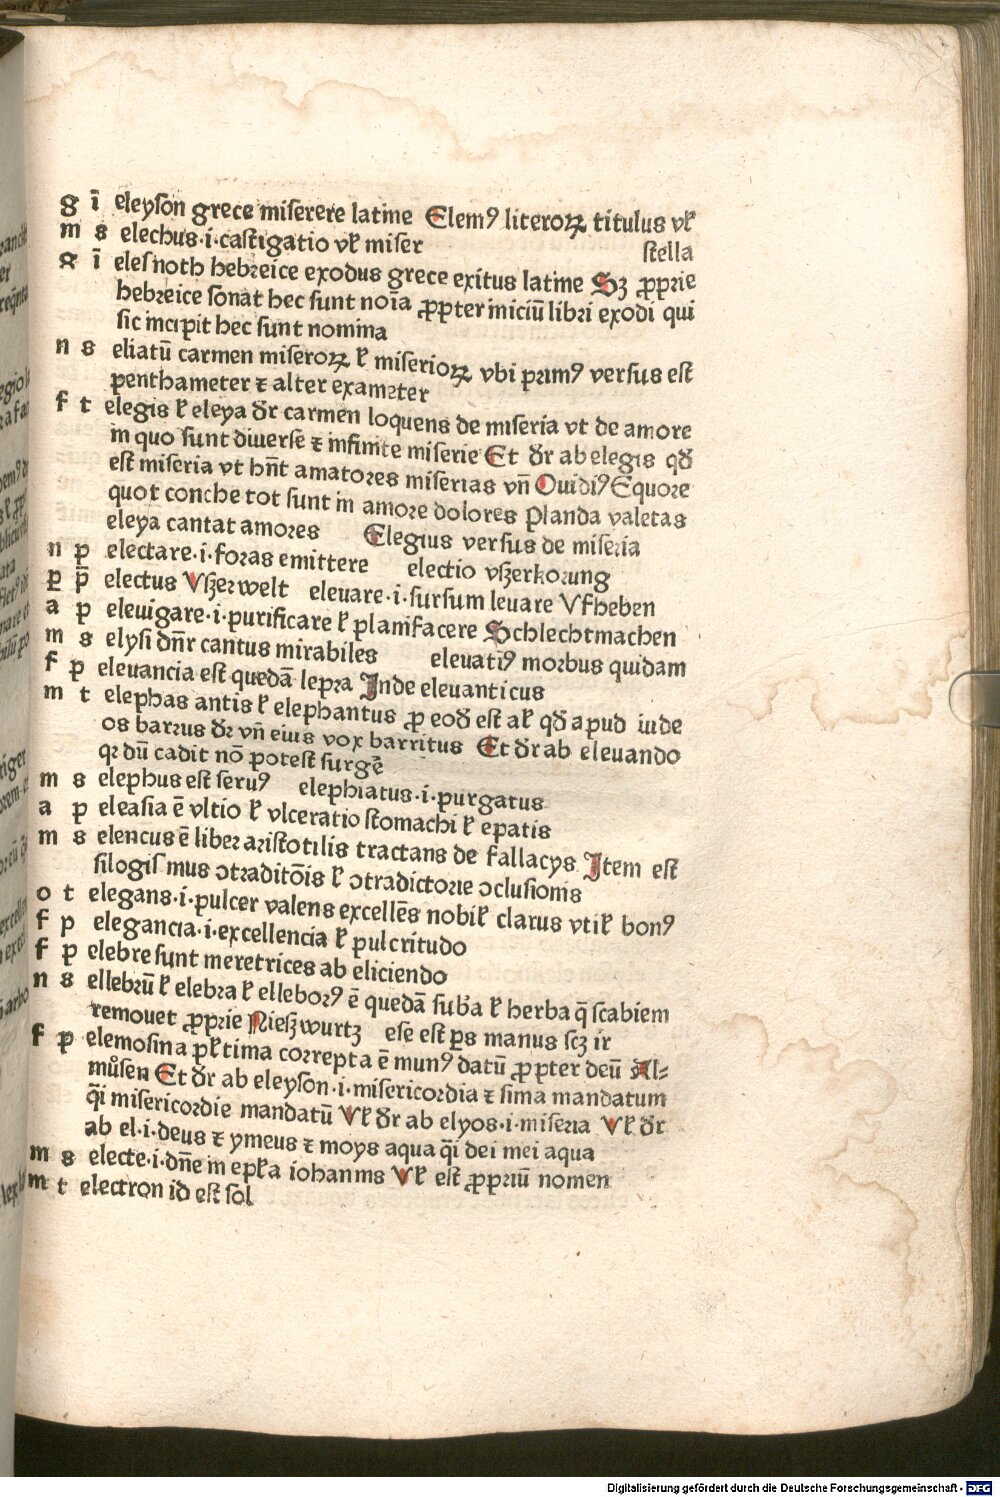 g ī eleyson grece miserere latine Elemꝰ literoꝝ titulus vł
m s elechus·i·castigatio vł miser stella
g ī elesnoth hebreice exodus grece exitus latine Sꝫ ꝓprie
hebreice sonat hec sunt noīa ꝓpter iniciū libri exodi qui
sic incipit hec sunt nomina
n s eliatū carmen miseroꝝ ł miserioꝝ vbi primꝰ versus est
penthameter ⁊ alter exameter
f t elegis ł eleya dr̄ carmen loquens de miseria vt de amore
in quo sunt diuerse ⁊ infinite miserie Et dr̄ ab elegis qđ
est miseria vt hn̄t amatores miserias vn̄ Ouidiꝰ Equore
quot conche tot sunt in amore dolores Planda valetas
eleya cantat amores Elegius versus de miseria
n p electare·i·foras emittere electio vſzerkorung
p p̄ electus Vſzerwelt eleuare·i·sursum leuare Vfheben
a p eleuigare·i·purificare ł planifacere Schlechtmachen
m s elysi dn̄r cantus mirabiles eleuatiꝰ morbus quidam
f p eleuancia est quedā lepra Inde eleuanticus
m t elephas antis ł elephantus ꝓ eođ est ał qđ apud iude
os barrus dr̄ vn̄ eius vox barritus Et dr̄ ab eleuando
qr dū cadit nō potest surgē
m s elephus est seruꝰ elephiatus·i·purgatus
a p eleasia ē vltio ł vlceratio stomachi ł epatis
m s elencus ē liber aristotilis tractans de fallacys Item est
silogismus ↄtraditōis ł ↄtradictorie ↄclusionis
o t elegans·i·pulcer valens excellēs nobił clarus vtił bonꝰ
f p elegancia·i·excellencia ł pulcritudo
f p elebre sunt meretrices ab eliciendo
n s ellebrū ł elebra ł elleborꝰ ē quedā sub̄a ł herba q̄ scabiem
remouet ꝓprie Nieſzwurtz ese est ꝑs manus scꝫ ir
f p elemosina pł tima correpta ē munꝰ datū ꝓpter deū Al⸗
můsen Et dr̄ ab eleyson·i·misericordia ⁊ sima mandatum
q̄i misericordie mandatū Vł dr̄ ab elyos·i·miseria Vł dr̄
ab el·i·deus ⁊ ymeus ⁊ moys aqua q̄i dei mei aqua
m s electe·i·dn̄e in epła iohannis Vł est ꝓpriū nomen
m t electron id est sol
Digitalisierung gefördert durch die Deutsche Forschungsgemeinschaft - DFG